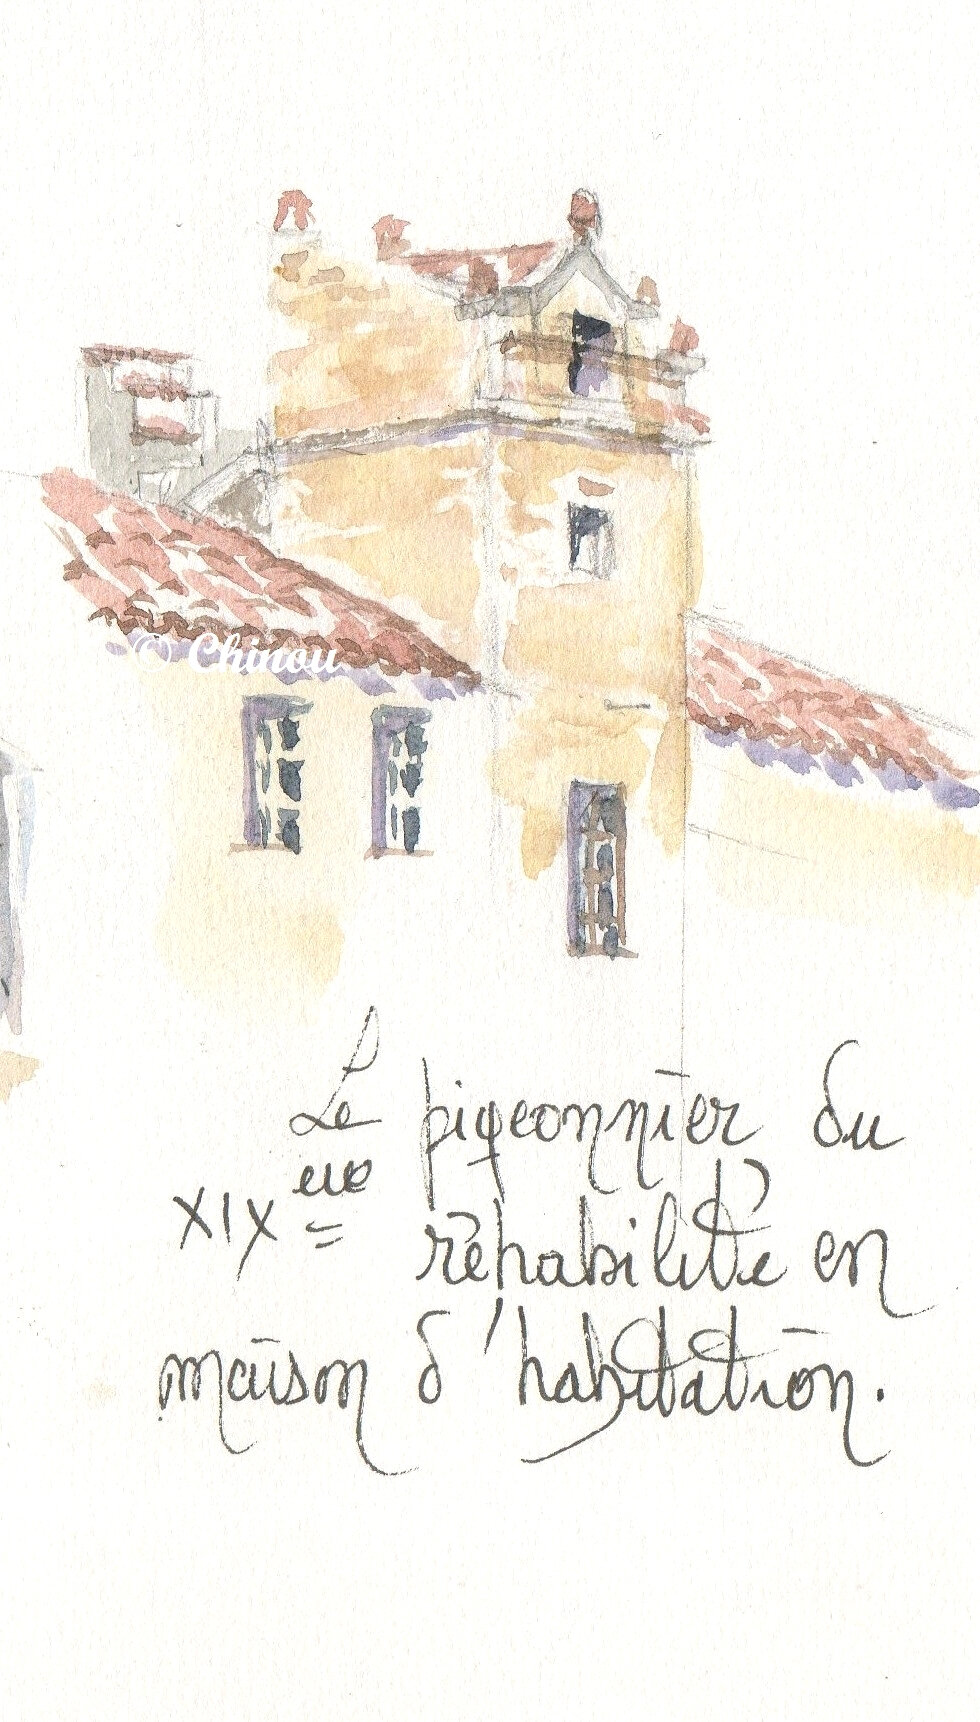 © Chinou
Le pigeonnier du
XIXeme réhabilité en
maison d'habitation.